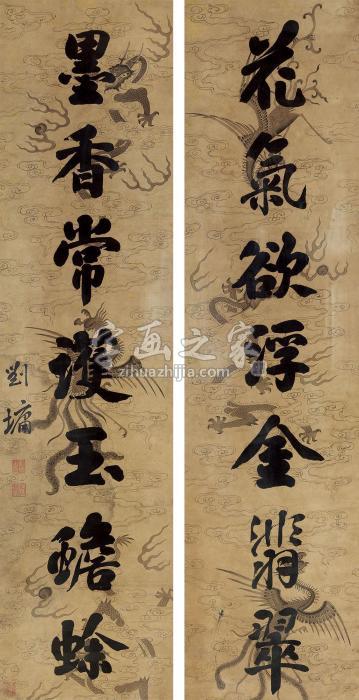 花氣欲浮金翡翠
墨香常護玉蟾蜍
劉墉
字画之家
zihuazhijia.com